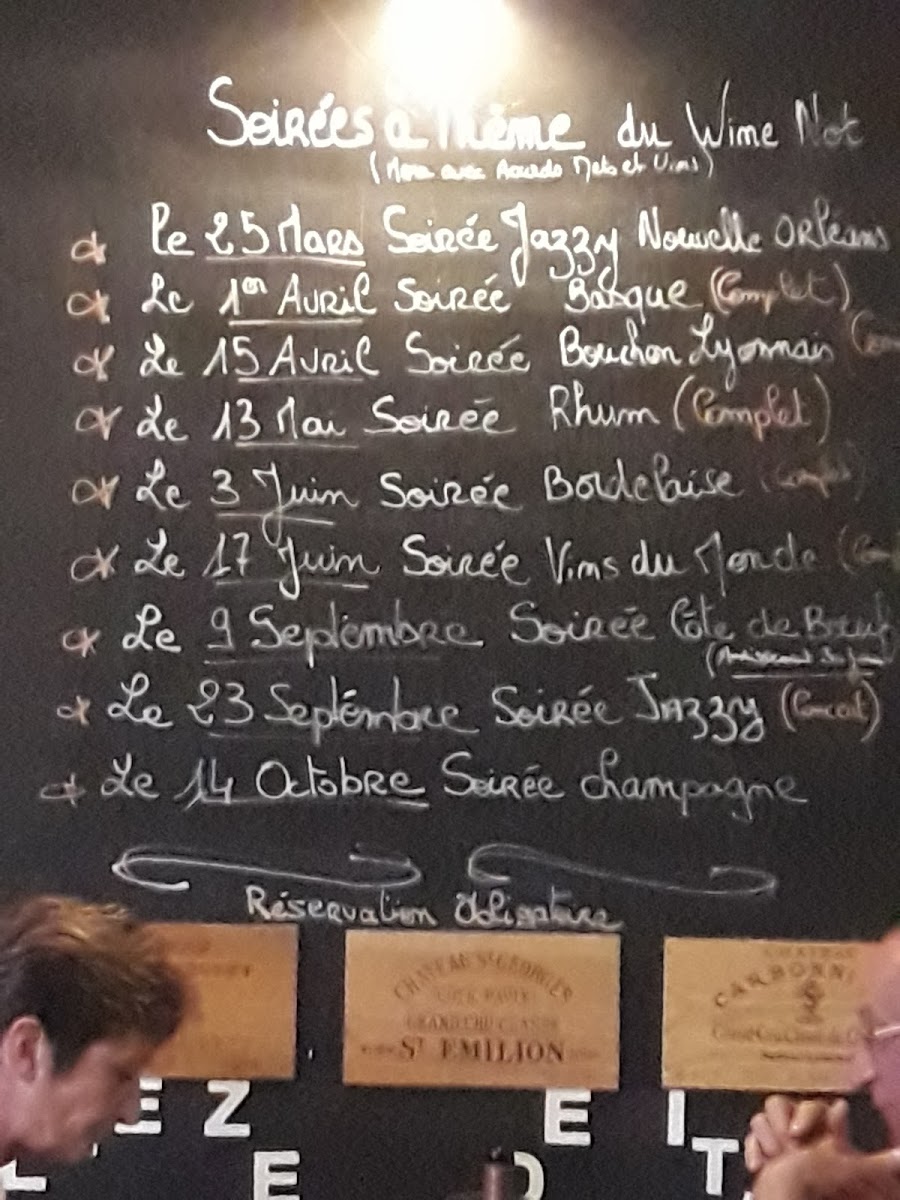 Soirées à Thème du Wine Not
(Menu avec Accords Mets et Vins)
Le 25 Mars Soirée Jazzy Nouvelle Orléans
Le 1er Avril Soirée Basque (Complet)
Le 15 Avril Soirée Bouchon Lyonnais (Com
Le 13 Mai Soirée Rhum (Complet)
Le 3 Juin Soirée Bordelaise (Complet)
Le 17 Juin Soirée Vins du Monde (Com
Le 9 Septembre Soirée Côte de Boeuf
Le 23 Septembre Soirée Jazzy (Concert)
Le 14 Octobre Soirée champagne
Réservation Obligatoire
CHATEAU ST GEORGES
GRAND CRU CLASSÉ
ST EMILION
CHATEAU
CARBONNI
Grand Cru Classé de G
EZ E IT
E O T